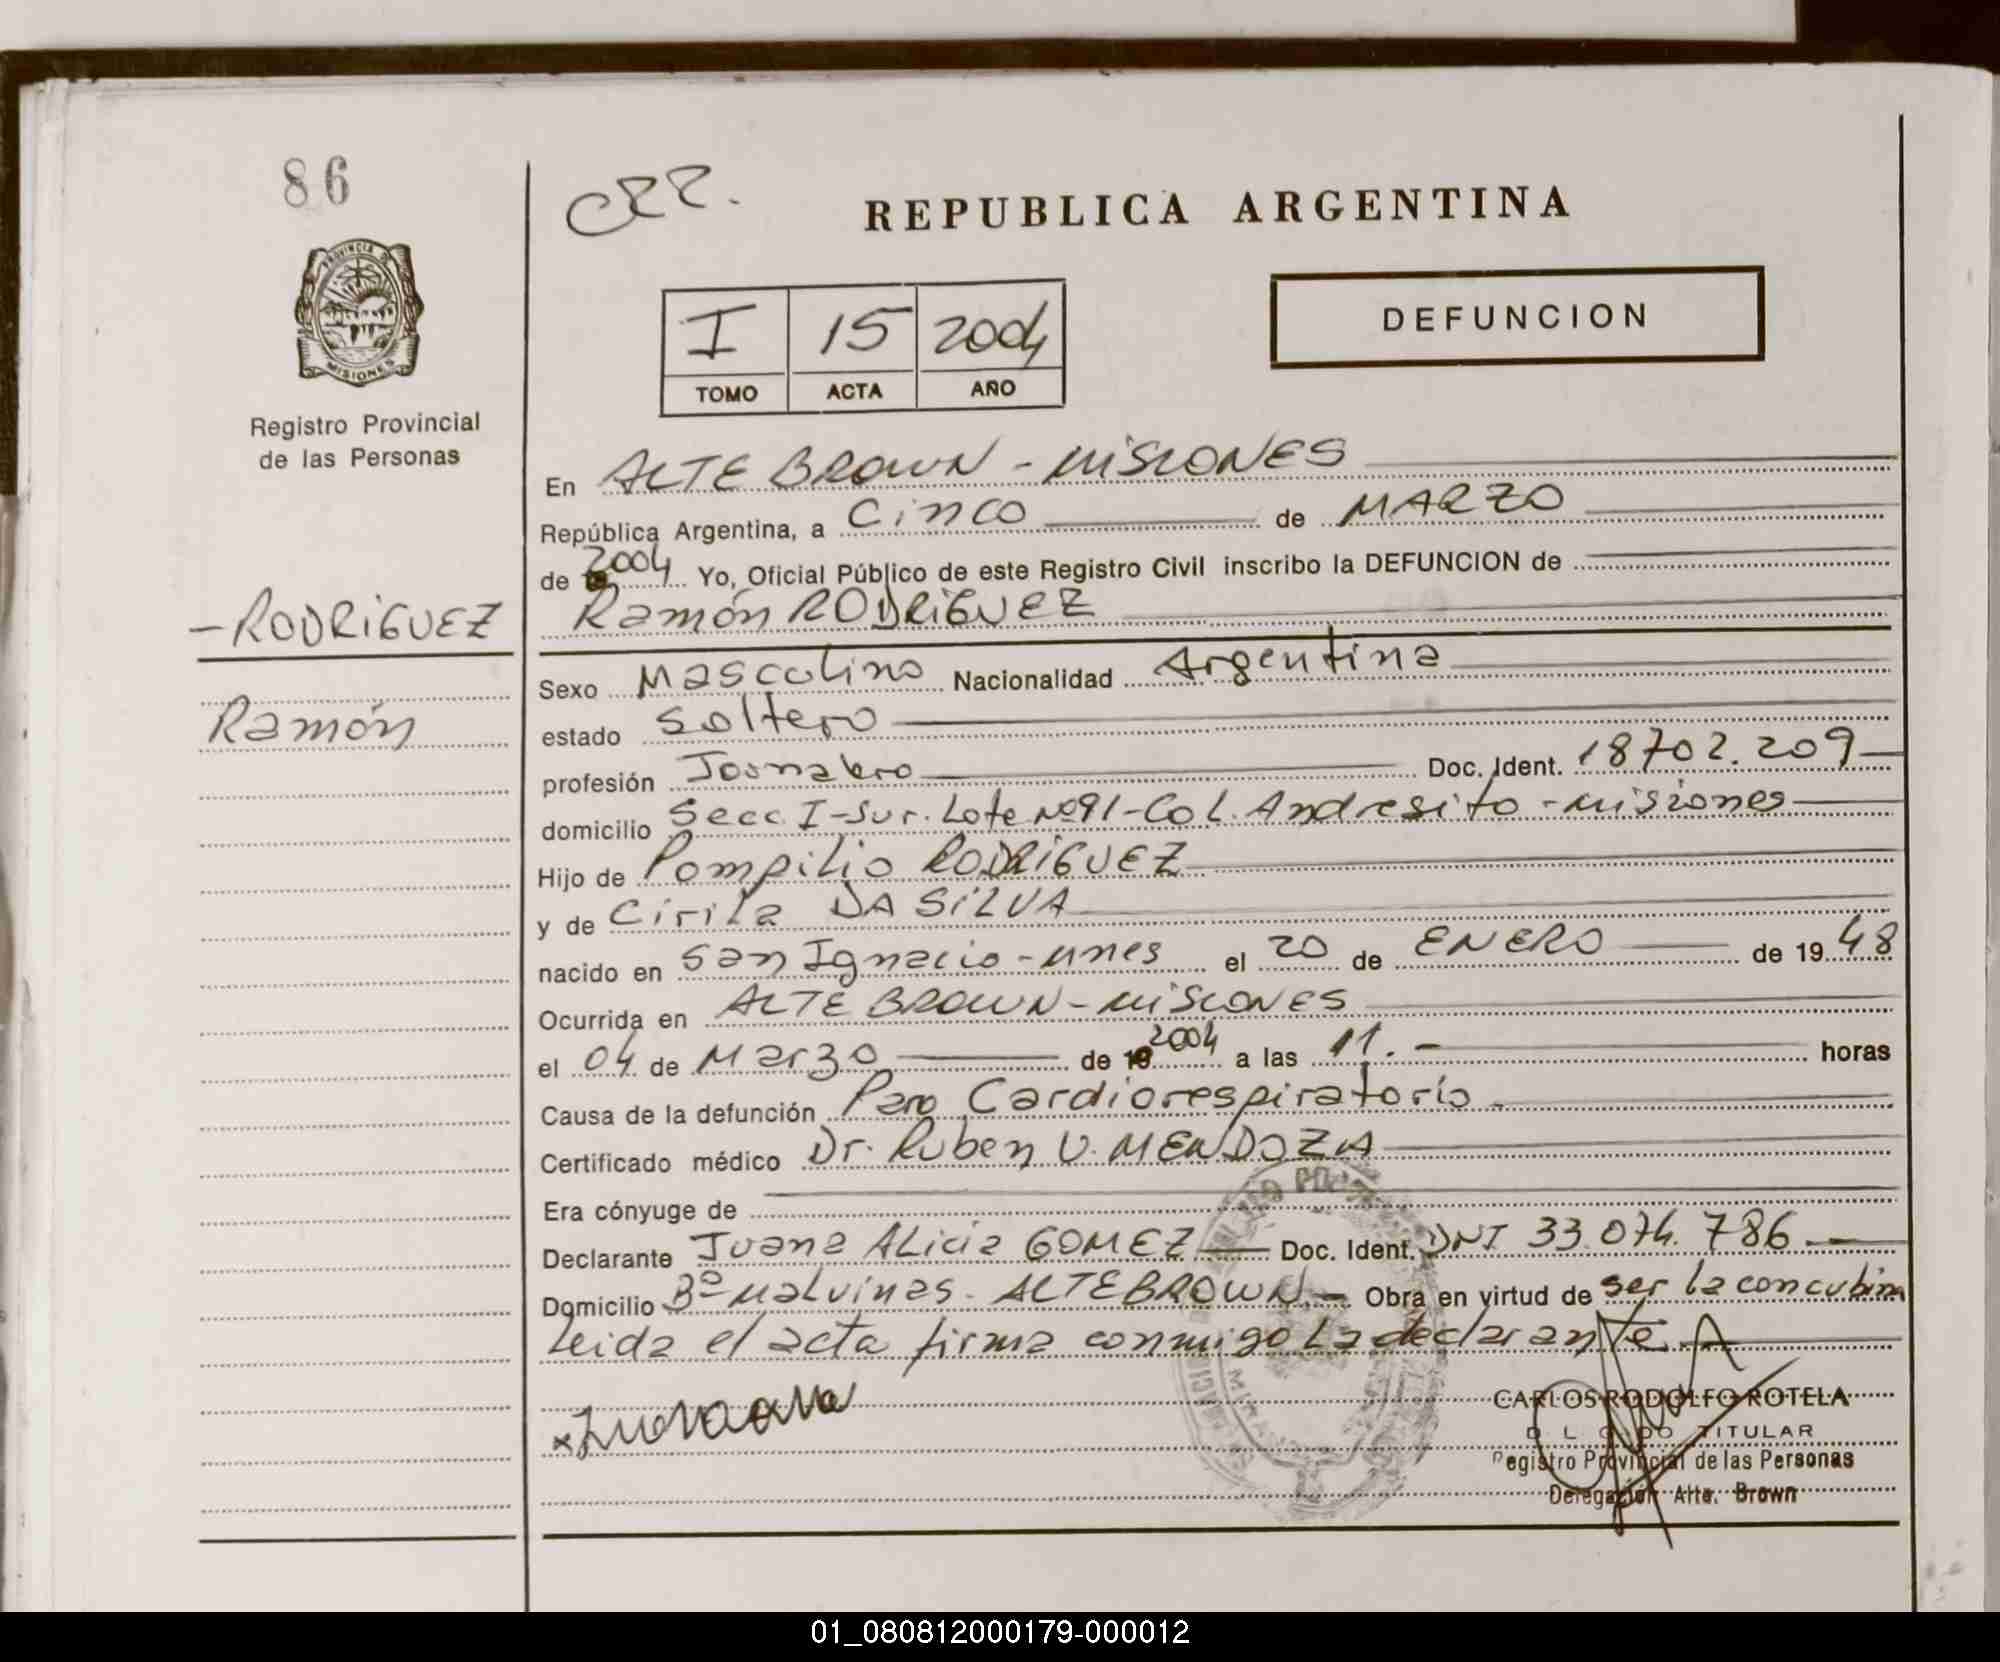 86
REPUBLICA ARGENTINA
PROVINCIA DE
MISIONES
I 15 2004
TOMO ACTA AÑO
DEFUNCION
Registro Provincial
de las Personas
En ALTE BROWN - MISIONES
República Argentina, a Cinco de MARZO
de 2004 Yo, Oficial Público de este Registro Civil inscribo la DEFUNCION de
- RODRIGUEZ
Ramón RODRIGUEZ
Sexo Masculino Nacionalidad Argentina
Ramón
estado Soltero
profesión Jornalero Doc. Ident. 18702.209
domicilio Secc. I-Sur. Lote Nº91-Col. Andresito - Misiones
Hijo de Pompilio RODRIGUEZ
y de Cirila DA SILVA
nacido en San Ignacio - Mnes el 20 de ENERO de 1948
Ocurrida en ALTE BROWN - MISIONES
el 04 de Marzo de 2004 a las 11.- horas
Causa de la defunción Paro Cardiorespiratorio.
Certificado médico Dr. Ruben U. MENDOZA
Era cónyuge de
Declarante Juana Alicia GOMEZ Doc. Ident. DNI 33.074.786.-
Domicilio Bº Malvinas - ALTE BROWN.- Obra en virtud de ser la concubina
Leida el acta firma conmigo la declarante
CARLOS RODOLFO ROTELA
TITULAR
Registro Provincial de las Personas
Delegación Alte. Brown
01_080812000179-000012